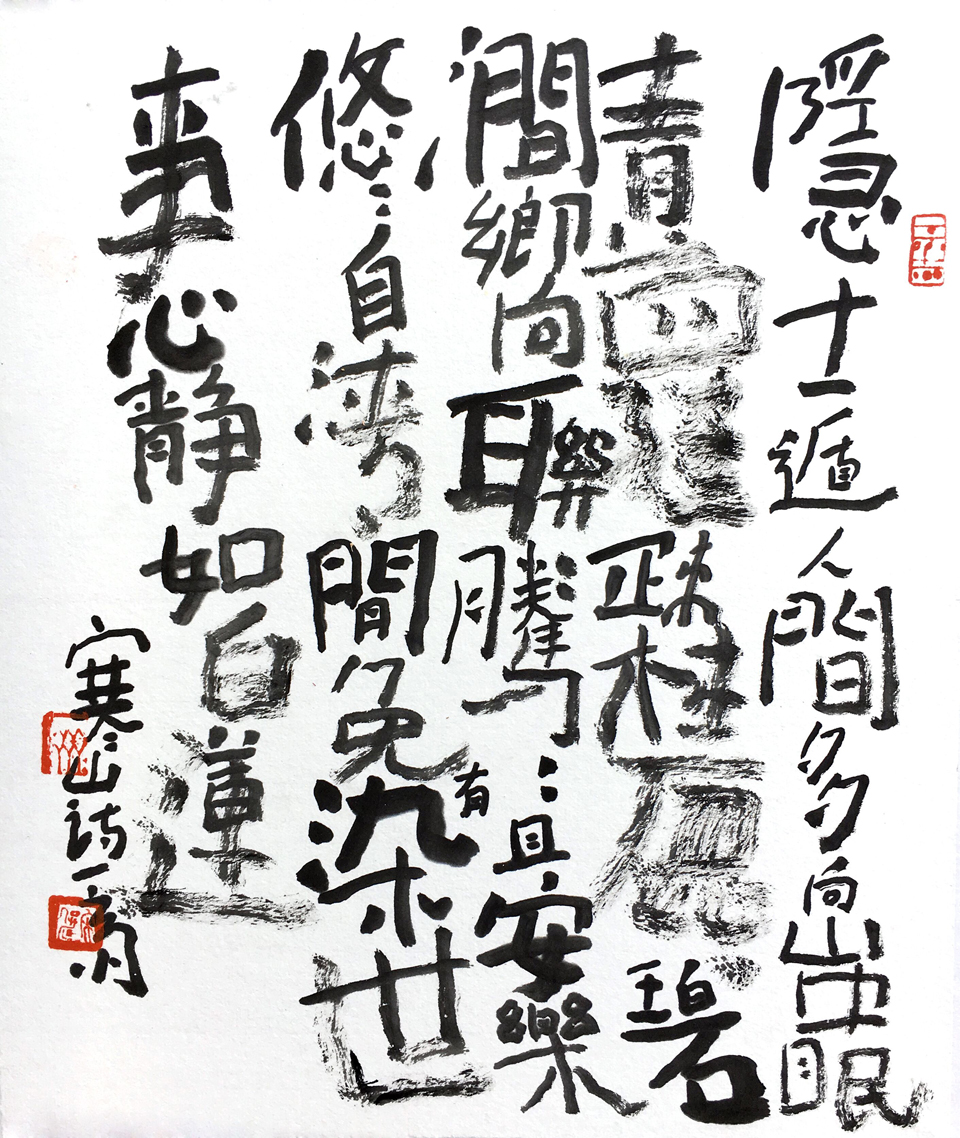 隱士遁人間多向山中眠
青蘿疎麓碧
澗響聯騰〻且安樂
悠〻自清間免有染世
事心靜如白蓮
寒山詩